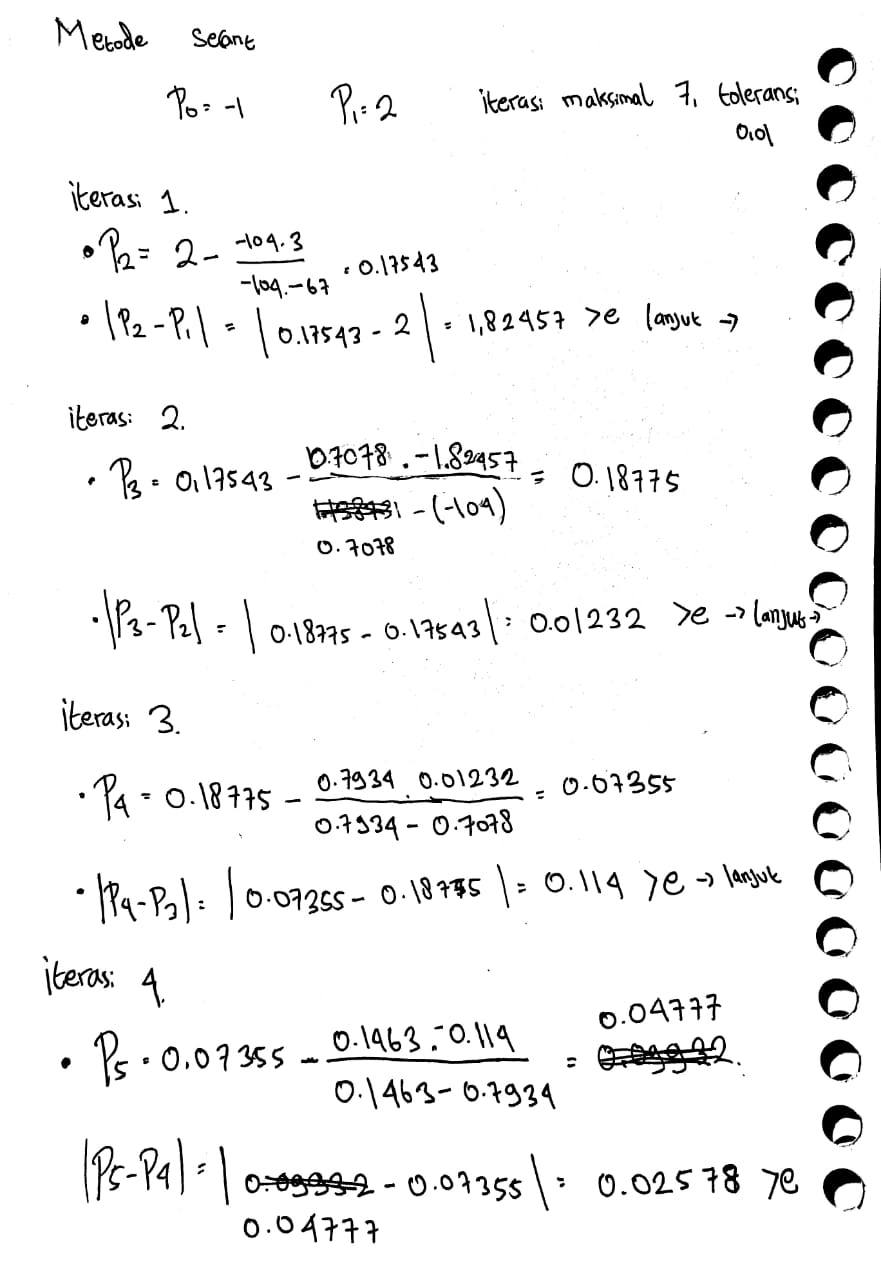 Metode Secant
P0 = -1 P1 = 2 iterasi maksimal 7, toleransi
0,01
iterasi 1.
• P2 = 2 - -104.3 / -104.-67 = 0.17543
• |P2 - P1| = |0.17543 - 2| = 1,82457 >e lanjut →
iterasi 2.
• P3 = 0,17543 - 0.7078 . -1.82457 / 0.7078 - (-104) = 0.18775
• |P3 - P2| = |0.18775 - 0.17543| = 0.01232 >e → lanjut →
iterasi 3.
• P4 = 0.18775 - 0.7934 . 0.01232 / 0.7934 - 0.7078 = 0.07355
• |P4 - P3| = |0.07355 - 0.18775| = 0.114 >e → lanjut
iterasi 4.
• P5 = 0,07355 - 0.1463 . -0.114 / 0.1463 - 0.7934 = 0.04777
|P5 - P4| = |0.04777 - 0.07355| = 0.02578 >e